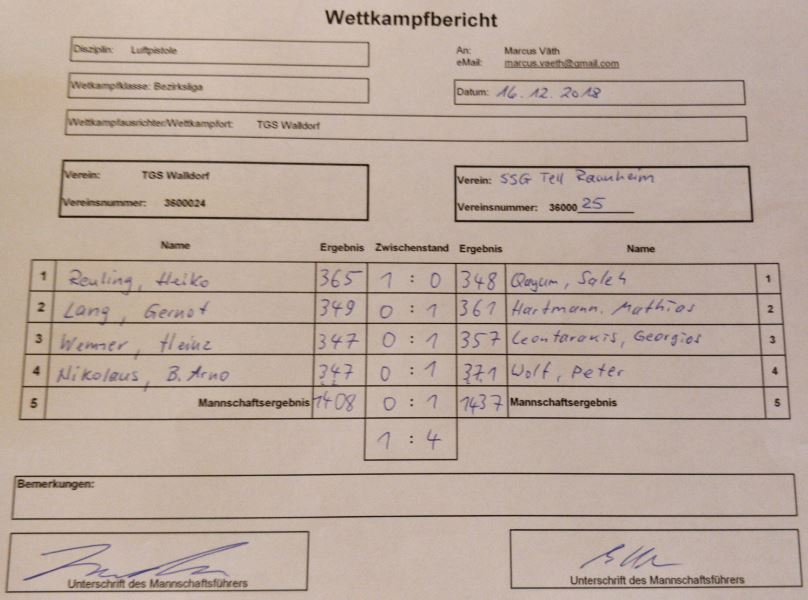 Wettkampfbericht
Disziplin: Luftpistole
An: Marcus Väth
eMail: marcus.vaeth@gmail.com
Wettkampfklasse: Bezirksliga
Datum: 16.12.2018
Wettkampfausrichter/Wettkampfort: TGS Walldorf
Verein: TGS Walldorf
Vereinsnummer: 3600024
Verein: SSG Tell Raunheim
Vereinsnummer: 36000 25
Name Ergebnis Zwischenstand Ergebnis Name
1 Reuling, Heiko 365 1 : 0 348 Qayum, Saleh 1
2 Lang, Gernot 349 0 : 1 361 Hartmann. Mathias 2
3 Wenner, Heinz 347 0 : 1 357 Leontarakis, Georgios 3
4 Nikolaus, B. Arno 347 0 : 1 371 Wolf, Peter 4
5 Mannschaftsergebnis 1408 0 : 1 1437 Mannschaftsergebnis 5
1 : 4
Bemerkungen:
Unterschrift des Mannschaftsführers
Unterschrift des Mannschaftsführers